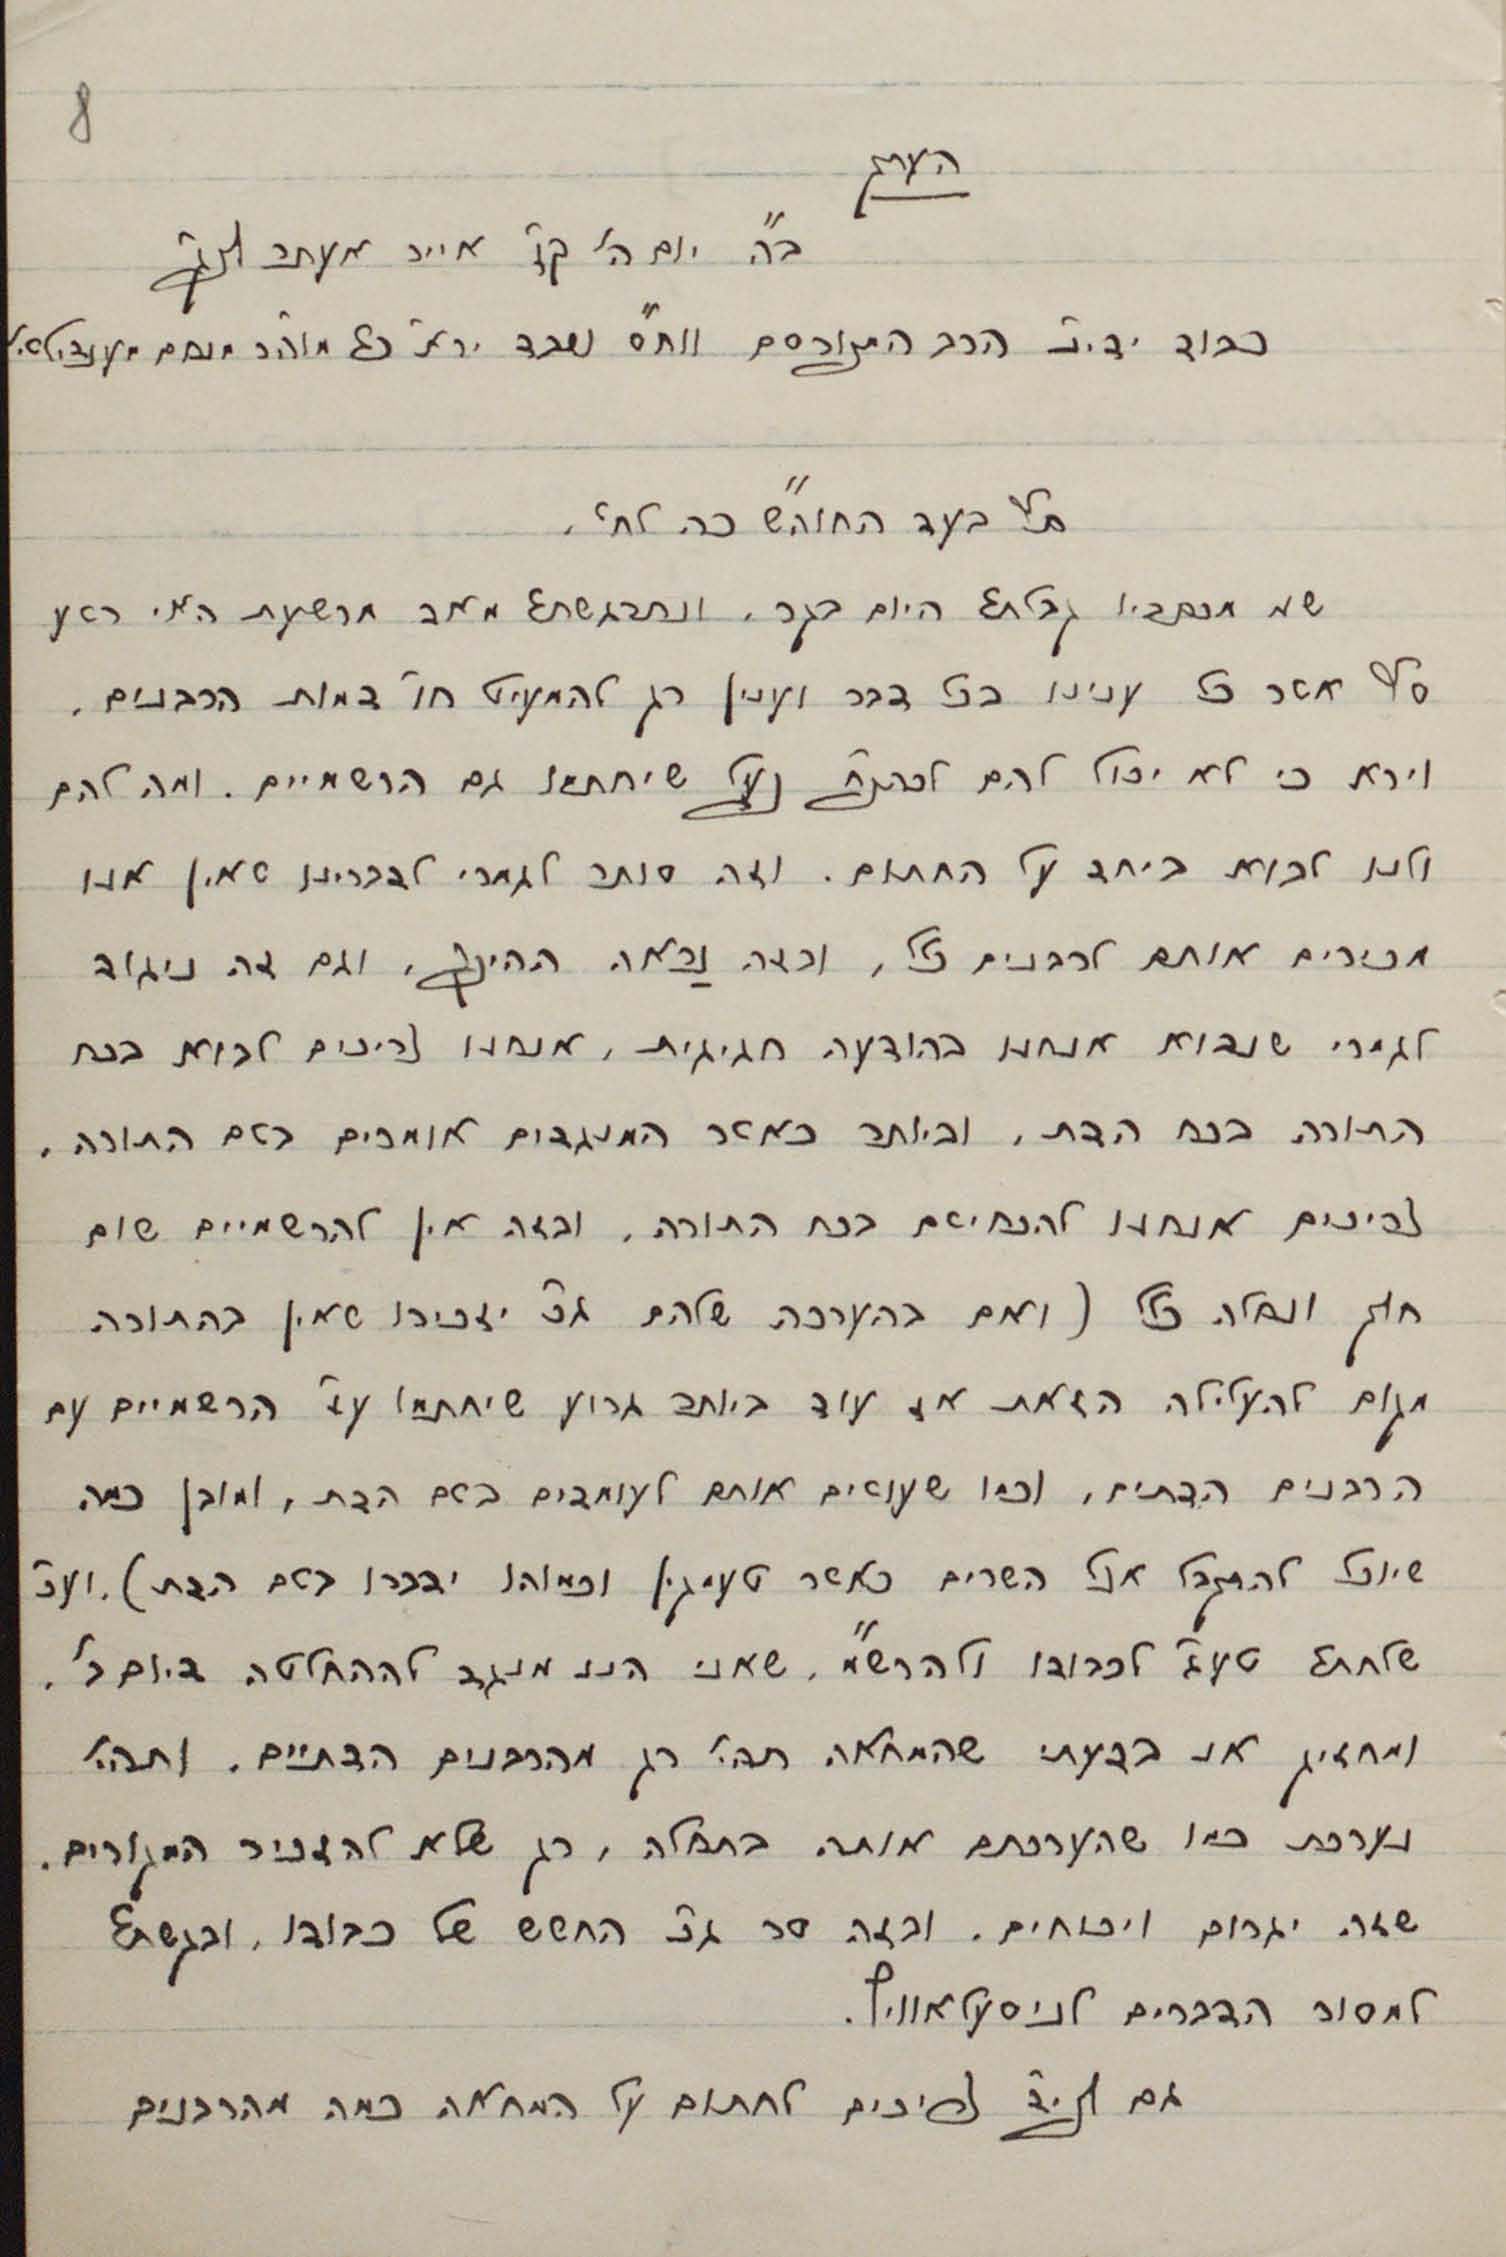 8
העתק
ב"ה יום ה' אייר מעתר
כבוד ידי"נ הרב המפורסם וו"ח נכבד ירא"א כש"ת מוה"ר מנחם
בעד החוה"ש כה לחי.
שני מכתביו קבלתי היום בקר, ונתרגשתי מאד מרשעת האי ראש
אשר כל ענינו בכל דבר וענין רק להמעיט חו"ד דמות הרבנים.
וירא כי לא יכול להם שיחתמו גם הרשמיים. ומה להם
ולנו לבוא ביחד על החתום. וזה סותר לגמרי לדברינו שאין אנו
מכירים אותם לרבנים כלל, ובזה נראה ההיפך, וגם זה ניגוד
לגמרי שנבוא אנחנו בהודעה חגיגית, אנחנו צריכים לבוא בכח
התורה בכח הדת, וביותר כאשר המנגדים אומרים בשם התורה,
צריכים אנחנו להכחישם בכח התורה, ובזה אין להרשמיים שום
חלק ונחלה כלל (ואם בהערכה שלהם ג"כ יזכירו שאין בהתורה
מקום להעלילה הזאת אז עוד ביותר גרוע שיחתמו ע"ז הרשמיים עם
הרבנים הדתים, וכמו שעושים אותם לעומדים בשם הדת, ומובן כמה
שיוכל להתקבל אצל השרים כאשר טעמקין וכמוהו ידברו בשם הדת). וע"כ
שלחתי טע"ג לכבודו ולהרש"מ, שאני הנני מנגד לההחלטה דיום ב'.
ומחזיק אני בדעתי שהמחאה תהי' רק מהרבנים הדתיים. ותהי'
נערכת כמו שהערכתם אותה בתחלה, רק שלא להזכיר המקורים.
שזה יגרום ויכוחים. ובזה סר ג"כ החשש של כבודו, ובקשתי
למסור הדברים לניסעלאוויץ.
גם צריכים לחתום על המחאה כמה מהרבנים